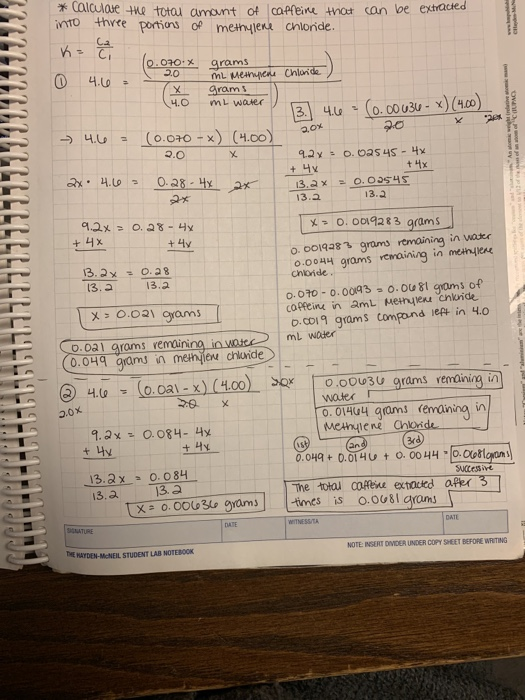 * Calculate the total amount of caffeine that can be extracted
into three portions of methylene chloride.
K = C2 / C1
① 4.6 = (0.070-x / 2.0 grams / mL Methylene Chloride) / (x / 4.0 grams / mL water)
→ 4.6 = (0.070 - x) (4.00) / 2.0 x
2x • 4.6 = 0.28 - 4x / 2x 2x
9.2x = 0.28 - 4x
+ 4x + 4x
13.2x = 0.28
13.2 13.2
x = 0.021 grams
0.021 grams remaining in water
0.049 grams in methylene chloride
② 4.6 = (0.021 - x) (4.00) / 2.0 x 2.0x
2.0x
9.2x = 0.084 - 4x
+ 4x + 4x
13.2x = 0.084
13.2 13.2
x = 0.00636 grams
3. 4.6 = (0.00636 - x) (4.00) / 2.0 x
2.0x
9.2x = 0.02545 - 4x
+ 4x + 4x
13.2x = 0.02545
13.2 13.2
x = 0.0019283 grams
0.0019283 grams remaining in water
0.0044 grams remaining in methylene
chloride.
0.070 - 0.00193 = 0.0681 grams of
caffeine in 2mL Methylene Chloride
0.0019 grams compound left in 4.0
mL water
0.00636 grams remaining in
water
0.01464 grams remaining in
Methylene Chloride
1st 2nd 3rd
0.049 + 0.0146 + 0.0044 = 0.0681 grams
successive
The total caffeine extracted after 3
times is 0.0681 grams
SIGNATURE DATE WITNESS/TA DATE
THE HAYDEN-McNEIL STUDENT LAB NOTEBOOK NOTE: INSERT DIVIDER UNDER COPY SHEET BEFORE WRITING